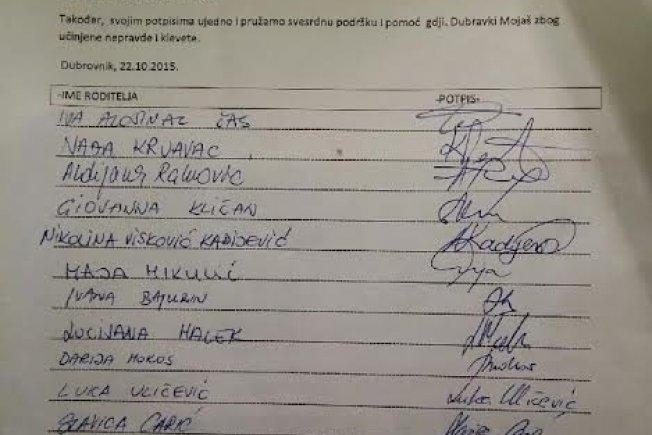 Također, svojim potpisima ujedno i pružamo svesrdnu podršku i pomoć gdji. Dubravki Mojaš zbog
učinjene nepravde i klevete.
Dubrovnik, 22.10.2015.
-IME RODITELJA -POTPIS-
IVA ČAS
NAĐA KRVAVAC
Aldijana Ramović
GIOVANNA KLIČAN
NIKOLINA VISKOVIĆ KADIJEVIĆ Kadijević
MAJA MIKULIĆ
IVANA BAJURIN
LUCIJANA MALEK
DARIJA MOKOS
LUKA VLIČEVIĆ Luka Vličević
SLAVICA CARIĆ